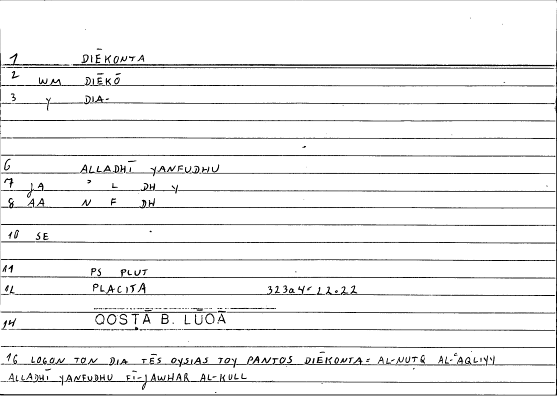 1 DIĒKONTA
2 WM DIĒKŌ
3 y DIA-
6 ALLADHĪ YANFUDHU
7 JA ʾ L DH Y
8 AA N F DH
10 SE
11 PS PLUT
12 PLACITA 323a4-22.22
14 QOSṬĀ B. LŪQĀ
16 LOGON TON DIA TĒS OYSIAS TOY PANTOS DIĒKONTA = AL-NUṬQ AL-ʿAQLIYY
ALLADHĪ YANFUDHU FĪ-JAWHAR AL-KULL